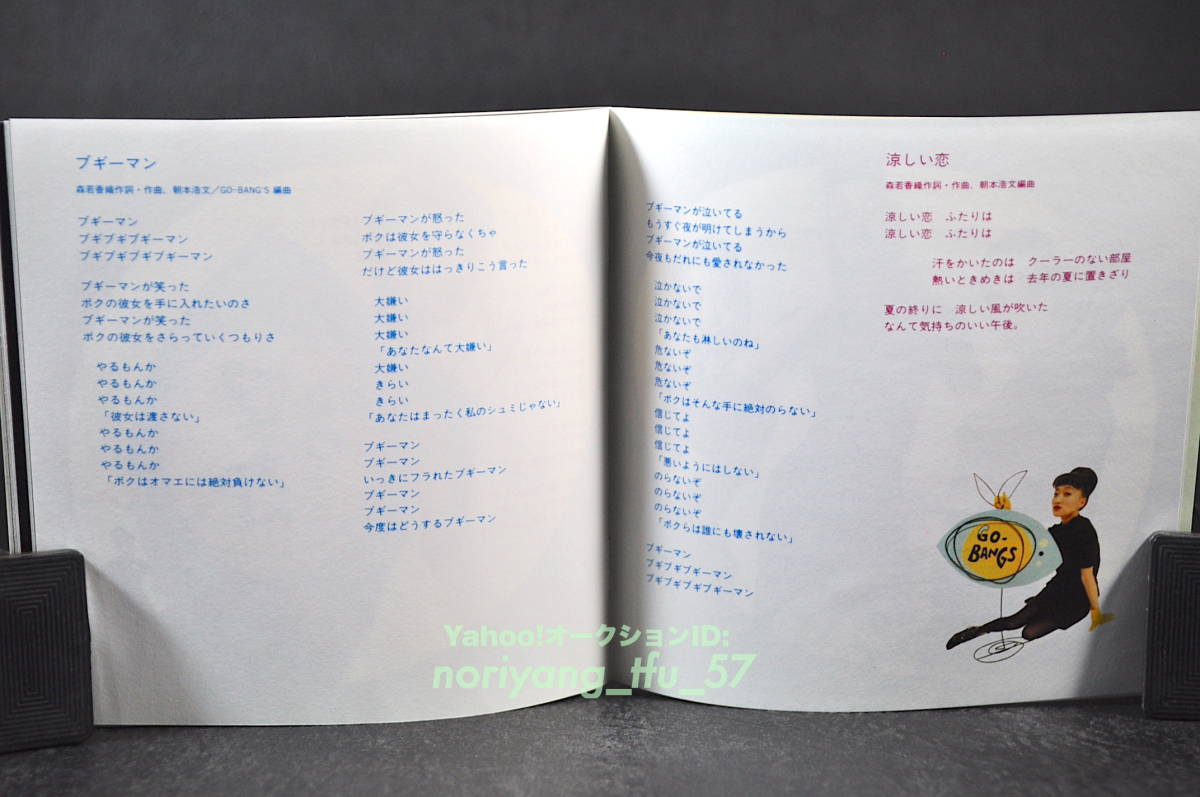 ブギーマン
森若香織作詞・作曲、朝本浩文／GO-BANG'S 編曲
ブギーマン
ブギブギブギーマン
ブギブギブギブギーマン
ブギーマンが笑った
ボクの彼女を手に入れたいのさ
ブギーマンが笑った
ボクの彼女をさらっていくつもりさ
やるもんか
やるもんか
やるもんか
「彼女は渡さない」
やるもんか
やるもんか
やるもんか
「ボクはオマエには絶対負けない」
ブギーマンが怒った
ボクは彼女を守らなくちゃ
ブギーマンが怒った
だけど彼女ははっきりこう言った
大嫌い
大嫌い
大嫌い
「あなたなんて大嫌い」
大嫌い
きらい
きらい
「あなたはまったく私のシュミじゃない」
ブギーマン
ブギーマン
いっきにフラれたブギーマン
ブギーマン
ブギーマン
今度はどうするブギーマン
ブギーマンが泣いてる
もうすぐ夜が明けてしまうから
ブギーマンが泣いてる
今夜もだれにも愛されなかった
泣かないで
泣かないで
泣かないで
「あなたも淋しいのね」
危ないぞ
危ないぞ
危ないぞ
「ボクはそんな手に絶対のらない」
信じてよ
信じてよ
信じてよ
「悪いようにはしない」
のらないぞ
のらないぞ
のらないぞ
「ボクらは誰にも壊されない」
ブギーマン
ブギブギブギーマン
ブギブギブギブギーマン
涼しい恋
森若香織作詞・作曲、朝本浩文編曲
涼しい恋　ふたりは
涼しい恋　ふたりは
汗をかいたのは　クーラーのない部屋
熱いときめきは　去年の夏に置きざり
夏の終りに　涼しい風が吹いた
なんて気持ちのいい午後。
GO-
BANGS
Yahoo!オークションID:
noriyang_tfu_57